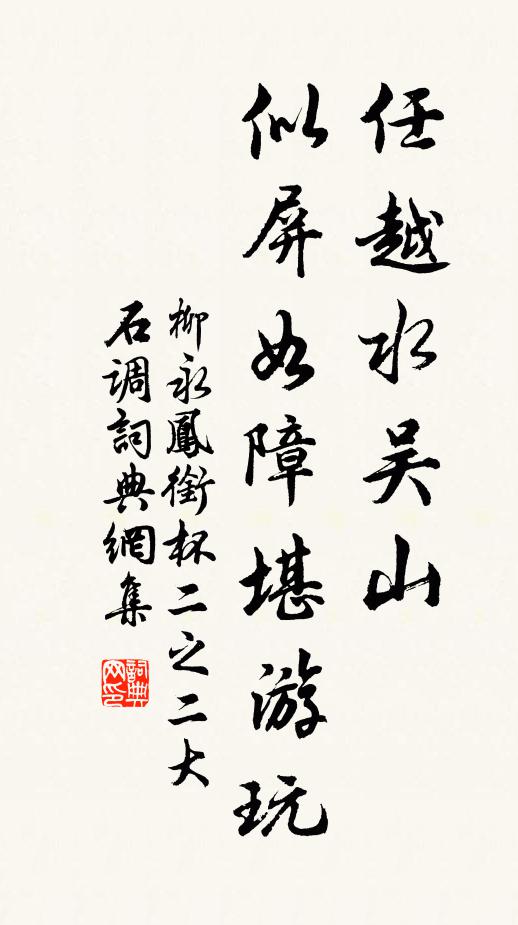 任越水吴山
似屏如障堪游玩
柳永鳳銜杯二之二大
石調詞典網集
詞典网印